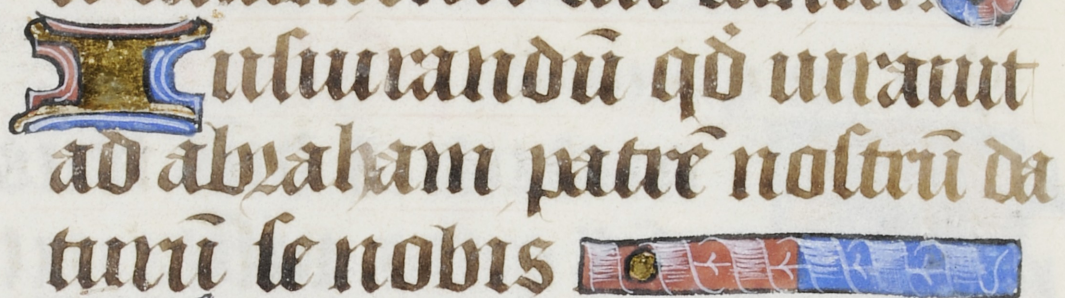 Iusiurandū qđ iurauit
ad abraham patrē nostrū da
turū se nobis